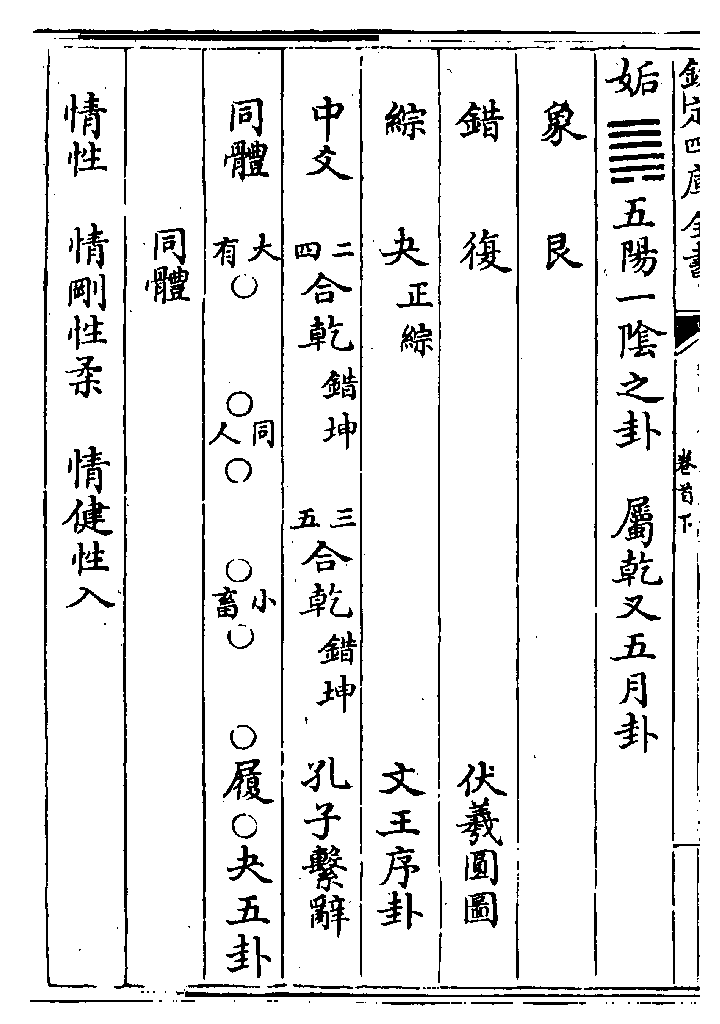 欽定四庫全書
卷首下
姤 ䷫ 五陽一陰之卦 屬乾又五月卦
象 艮
錯 復 伏羲圓圖
綜 夬 正綜 文王序卦
中爻 二四合乾 錯坤 三五合乾 錯坤 孔子繫辭
同體 大有○ ○同人○ ○小畜○ ○履○夬五卦
同體
情性 情剛性柔 情健性入